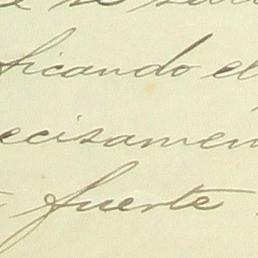 ficando el
ecisamen
fuerte